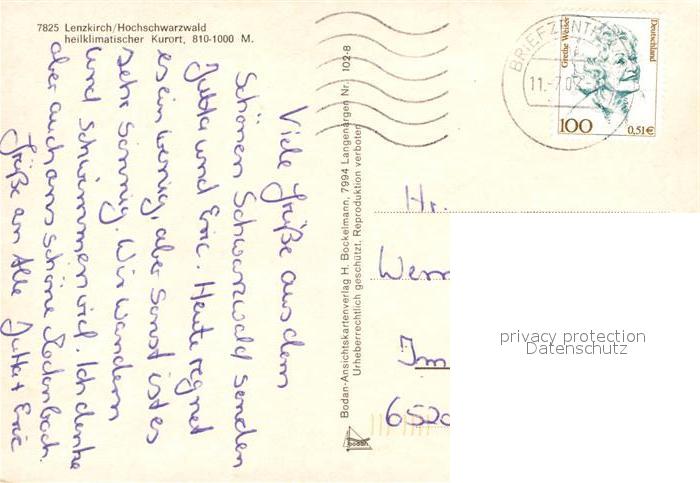 7825 Lenzkirch/Hochschwarzwald
heilklimatischer Kurort, 810-1000 M.
Viele Grüße aus dem
schönen Schwarzwald senden
Jutta und Eric. Heute regnet
es ein wenig, aber sonst ist es
sehr sonnig. Wir wandern
und schwimmen viel. Ich denke
aber auch ans schöne Rodenbach.
Grüße an Alle Jutta + Eric
Bodan-Ansichtskartenverlag H. Bockelmann, 7994 Langenargen Nr. 102-8
Urheberrechtlich geschützt. Reproduktion verboten
bodan
BRIEFZENTR
11.-7.02
Grethe Weiser
Deutschland
100
0,51€
Hr.
Wern
Im
6520
privacy protection
Datenschutz